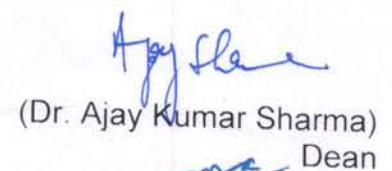 Ajay Sharma
(Dr. Ajay Kumar Sharma)
Dean